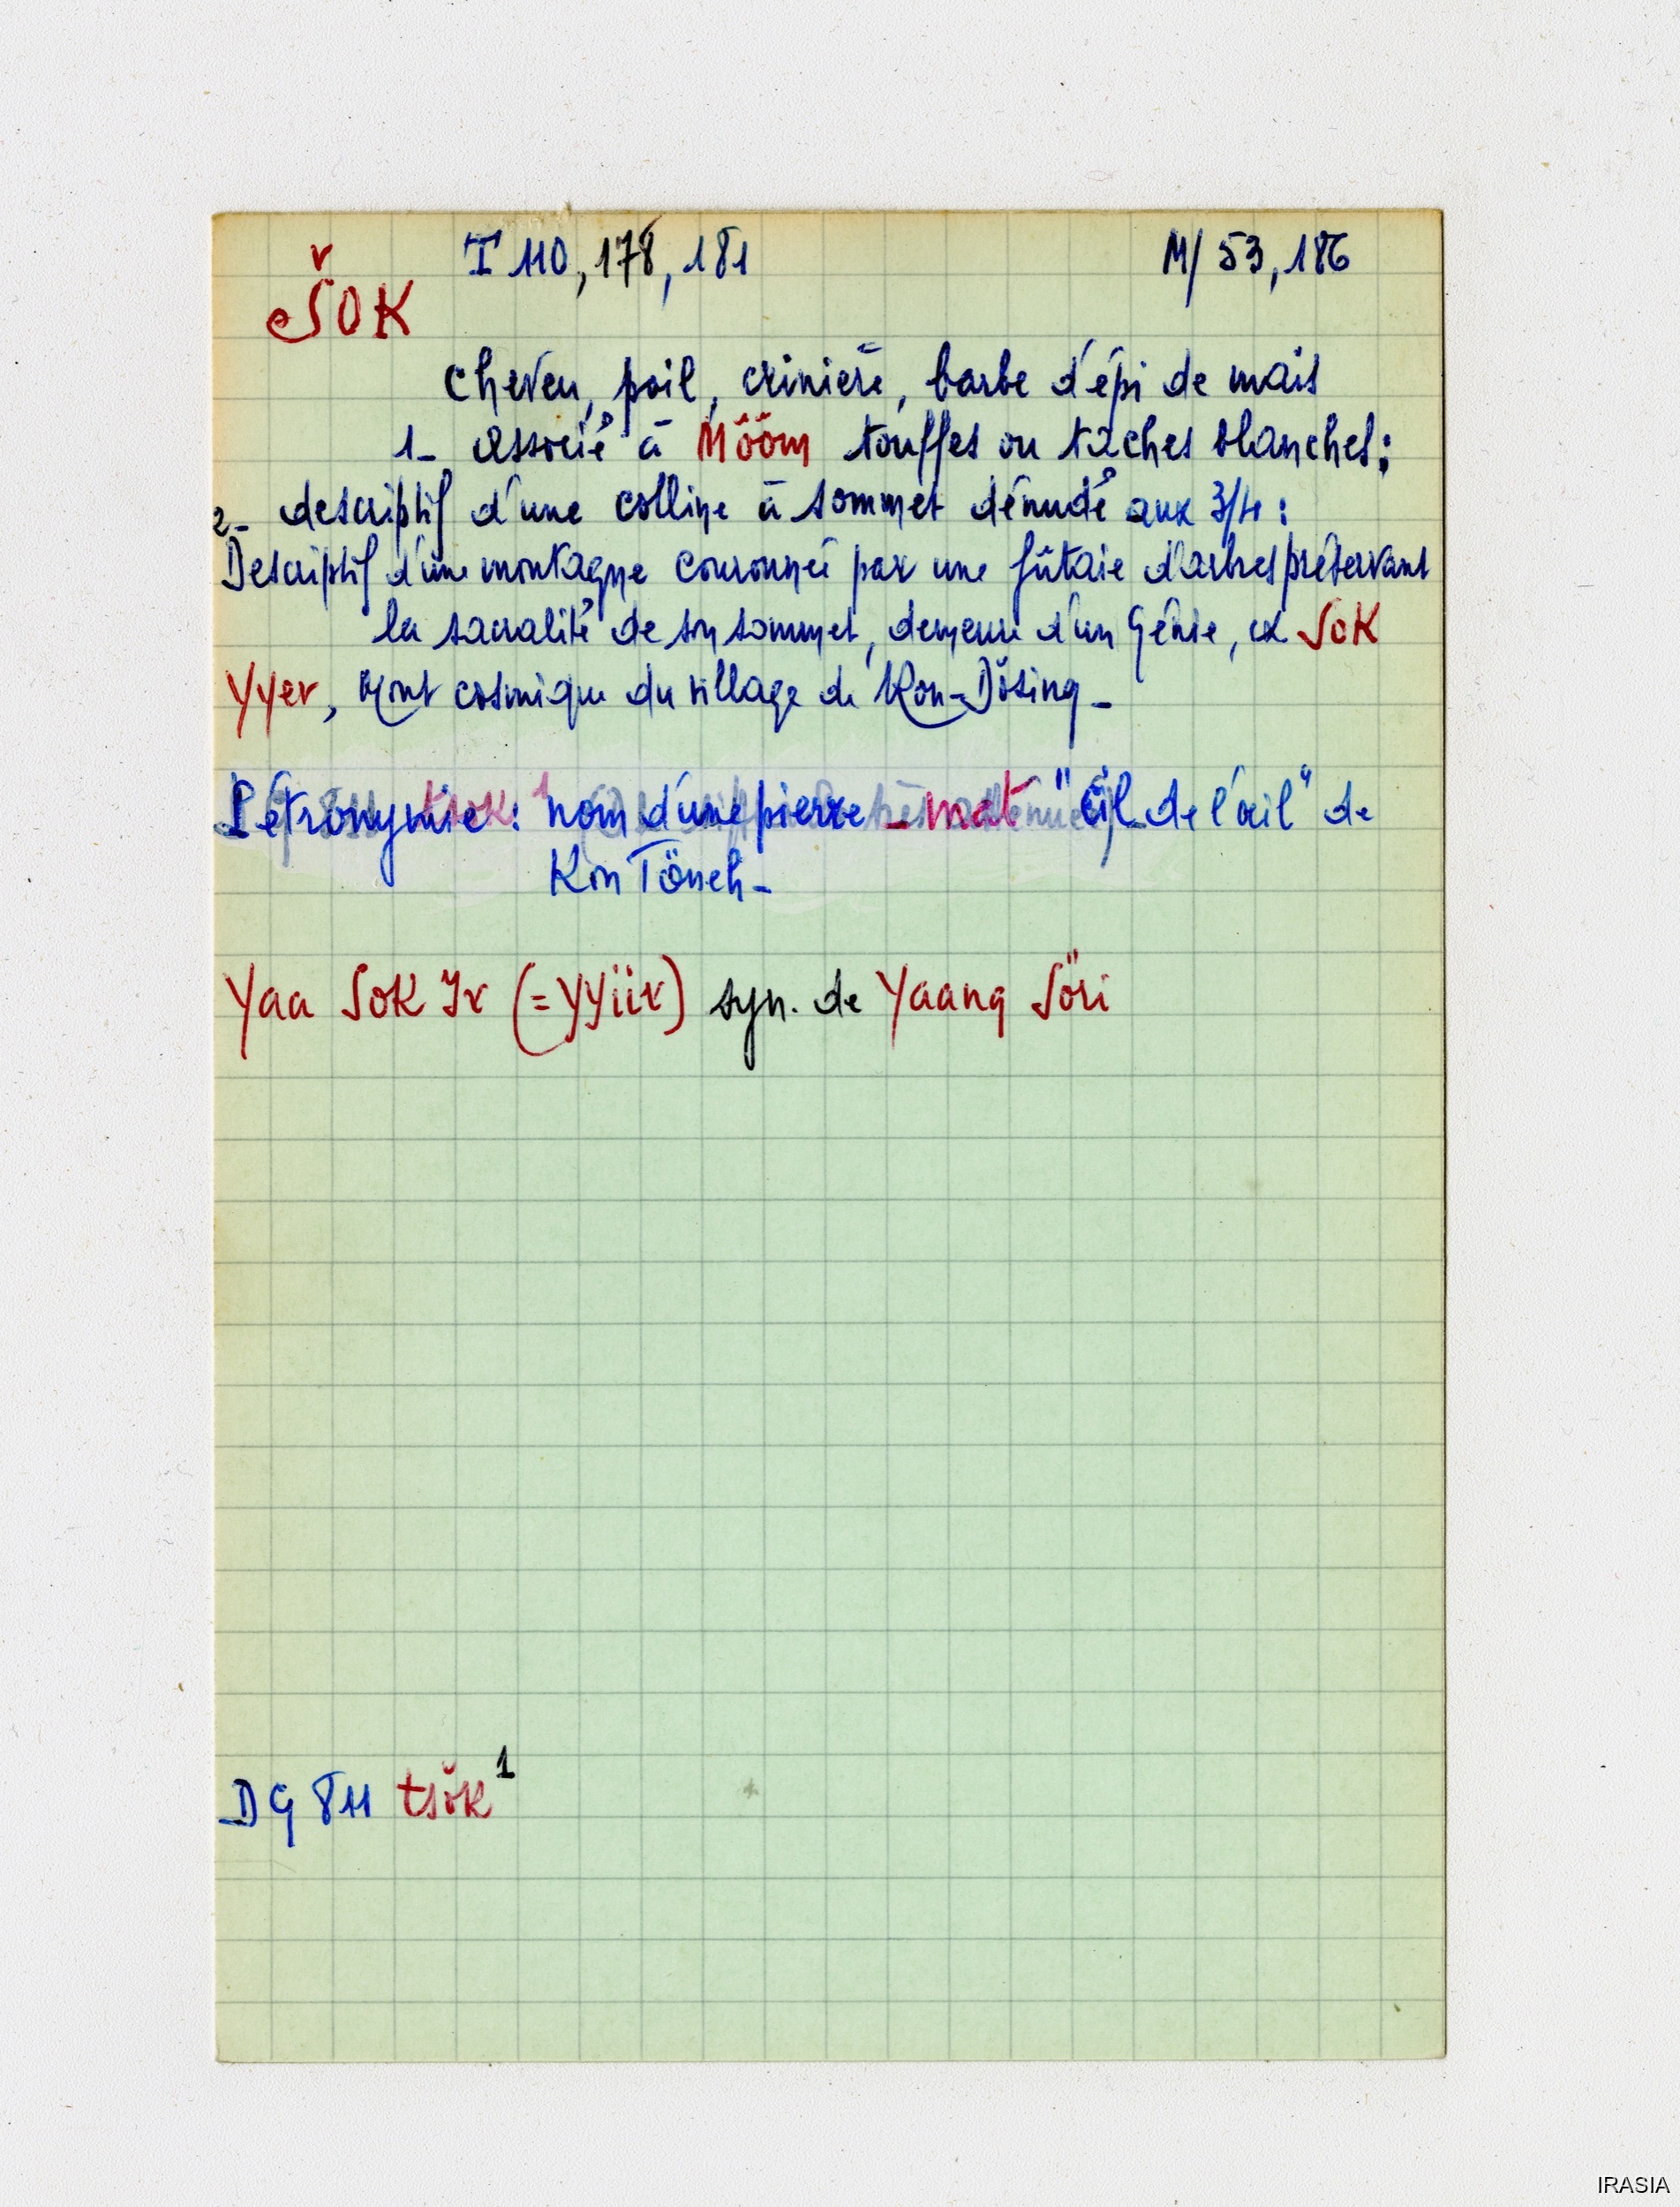 T 110, 178, 181 M/ 53, 186
ŠOK
cheveu, poil, crinière, barbe d'épi de maïs
1_ associé à Môôm touffes ou tâches blanches;
2_ descriptif d'une colline à sommet dénudé aux 3/4 :
Descriptif d'une montagne couronnée par une fûtaie d'arbres préservant
la sacralité de son sommet, demeure d'un Génie, ex SoK
Yyer, Mont cosmique du village de Kon-Dösing_
Pétronymie: nom d'une pierre _ mat "Cil de l'œil" de
Kon Töneh_
Yaa SoK Yr (=YYiir) syn. de Yaang Söri
DG 811 tsŏk¹
IRASIA